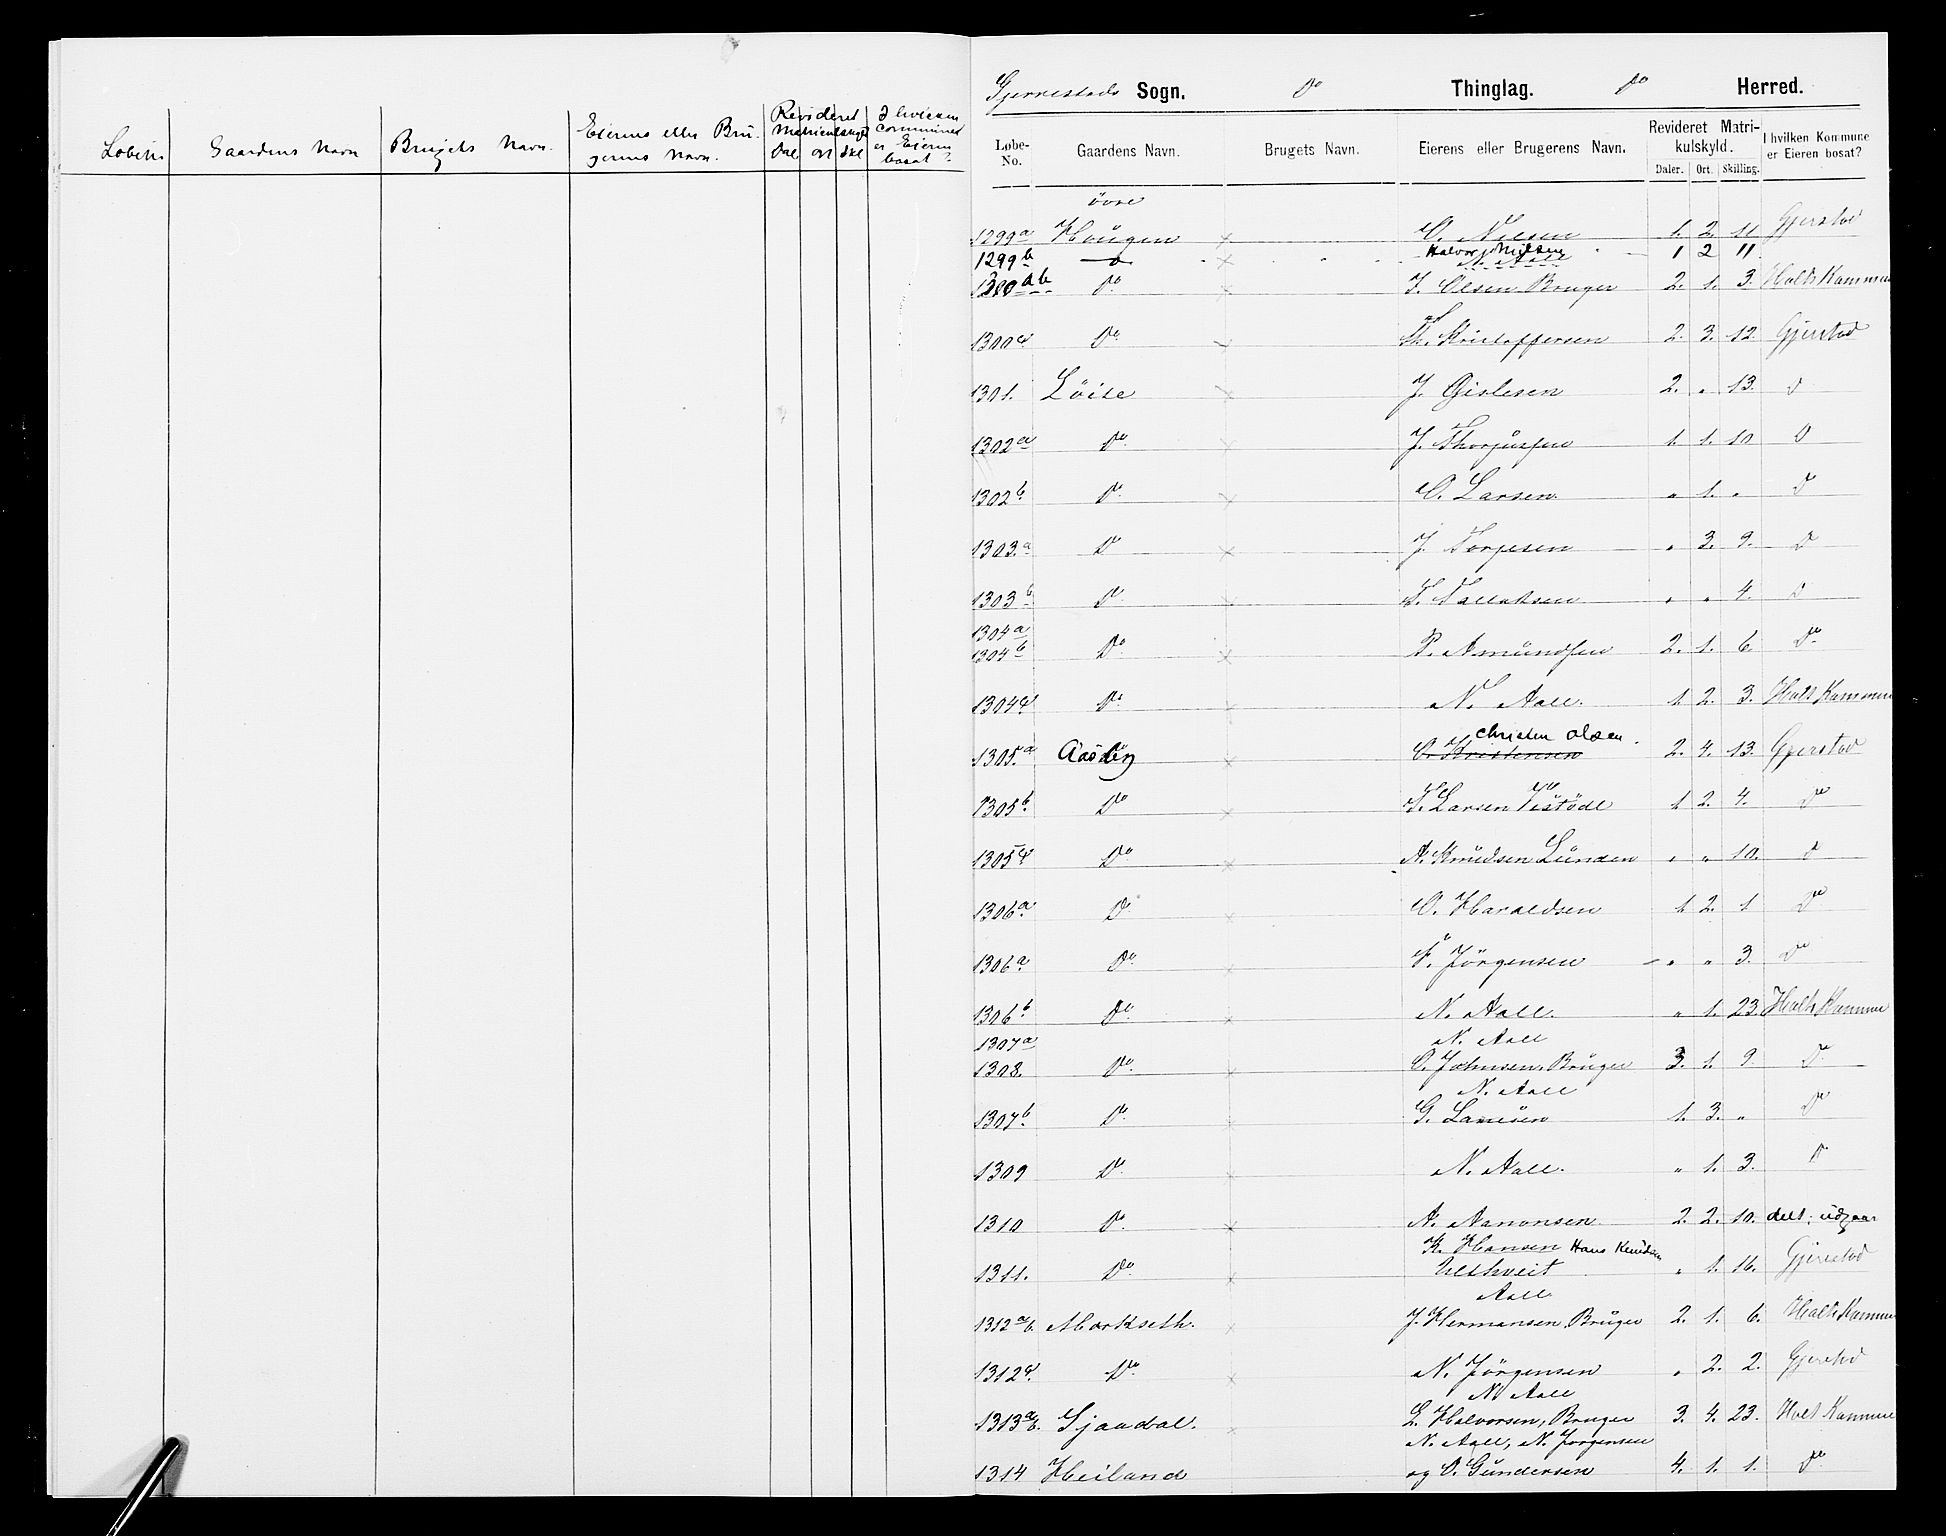 Løbenr Gaardens Navn Brugets Navn. Eierens eller Bru-
gerens Navn. Revideret
Matriculskyld
Dal ort skl I hvilken
commune
er Eieren
bosat?
Gjerrestads Sogn. Do Thinglag. Do Herred.
Løbe-No. Gaardens Navn. Brugets Navn. Eierens eller Brugerens Navn. Revideret Matrikulskyld. Daler. Ort. Skilling. I hvilken Kommune er Eieren bosat?
övre
1299a Hougen O. Nilsen 1. 2. 11 Gjerstad
1299b do Halvor Nilsen 1 2 11
N. Aall
1300ab Do J. Olsen Bruger 2. 1. 3. Holts Kommune
1300c Do Kristoffersen 2. 3. 12. Gjerstad
1301. Löite J. Gislesen 2. „ 13. D
1302a Do J. Thorjusfen 1. 1. 10 D
1302b Do O. Larsen „ 1. „ D
1303.a D J. Torjesen „ 3. 9. D
1303b D T. Tallaksen „ „ 4. D
1304a
1304b Do P. Amundsen 2. 1. 6 Do
1304c Do N. Aall. 1. 2. 3. Holt Kommune
Christen Olsen
1305.a O. Kristensen 2. 4. 13. Gjerstad
1305b Do T. Larsen 1 2. 4. Do
1305c Do A. Knudsen Lunden „ „ 10. D
1306a D O. Haraldsen 1 2. 1 Do
1306a. Do Jörgensen „ „ 3. Do
1306b Do N. Aall. „ 1. 23. Holts Kommune
1307a N. Aall
1308. Do O. Johnsen, Bruger 3. 1. 9. Do
N. Aall
1307b Do G. 1. 3. „ Do
1309 Do N. Aall. „ 1. 3. D
1310 Do A. Aanonsen 2. 2. 10. delt; udgaar
K. Hansen Hans Knudsen
1311. Do Ulltveit „ 1. 16. Gjerestad
Aall
1312ab. Morkseth. J. Hermansen, Bruger 2. 1. 6. Holts Kommune
1312c. Do N. Jörgensen „ 2. 2. Gjerstad
N. Aall
1313ab. Gjaadal. L. Halvorsen, Bruger 3. 4. 23. Holt Kommune
N. Aall, N. Jorgensen
1314 Heiland og O. Gundersen 4. 1. 1. Do